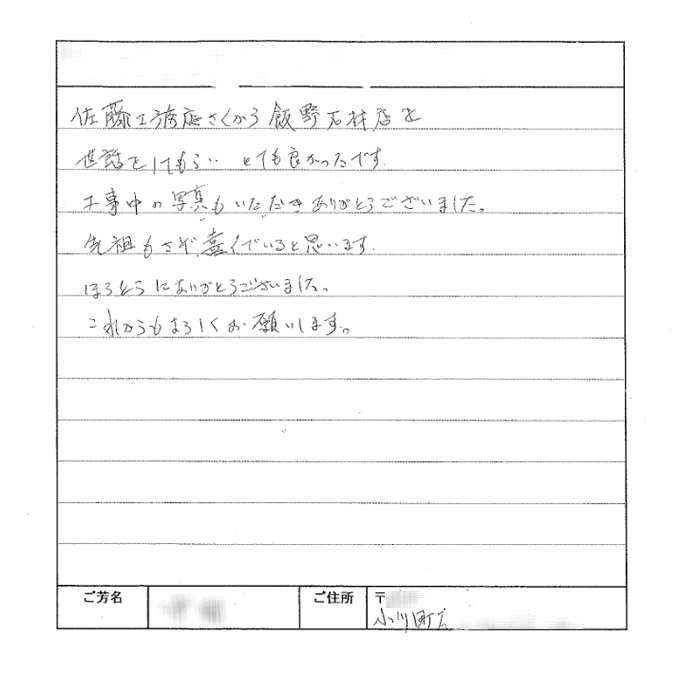 佐藤工務店さんから飯野石材店を
世話をしてもらい とても良かったです.
工事中の写真もいただきありがとうございました。
先祖もさぞ喜んでいると思います.
ほんとうにありがとうございました。
これからもよろしくお願いします。
ご芳名
ご住所
〒
小川町